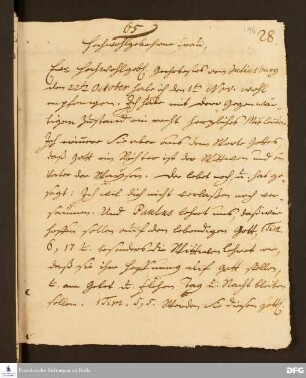 65
28
Hochwohlgebohrne Frau,
Ew. Hochwohlgeb. Geehrtestes von Juliusburg
den 22ten October habe ich den 1ten Nov. wohl
empfangen. Ich habe mit dero gegenwär-
tigen Zustand ein recht herzliches Mitleiden.
Ich erinnere Sie aber aus dem Worte Gottes,
daß Gott ein Richter ist der Wittwen und
Vater der Waysen. Der lebet noch u. hat ge-
sagt: Ich will dich nicht verlassen noch ver-
säumen. Und Paulus lehret uns, daß wir
hoffen sollen auf den lebendigen Gott, 1 Tim.
6, 17 u. besonders die Wittwen lehret er,
daß sie ihre Hoffnung auf Gott stellen,
u. am Gebet u. Flehen Tag u. Nacht bleiben
sollen. 1 Tim. 5, 5. Werden Sie diesen
Franckesche Stiftungen zu Halle
DFG